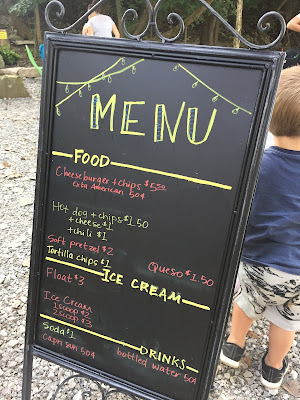 MENU
FOOD
Cheeseburger + chips $5.50
Extra American 50¢
Hot dog + chips $1.50
+ cheese $1
+ chili $1
Soft pretzel $2
Tortilla chips $1
Queso $1.50
ICE CREAM
Float $3
Ice Cream
1 scoop $2
2 scoop $3
DRINKS
Soda $1
Capri sun 50¢
bottled water 50¢